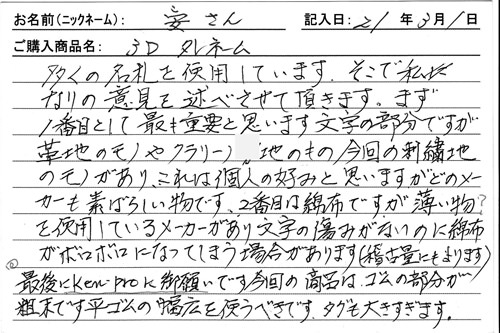 お名前(ニックネーム): 安 さん 記入日: 21 年 3 月 1 日
ご購入商品名: 3D タレネーム
多くの名札を使用しています。そこで私
なりの意見を述べさせて頂きます。まず
1番目として最も重要と思います文字の部分ですが
革地のモノやクラリーノ 地のもの 今回の刺繍地
のモノがあり、これは個人の好みと思いますがどのメー
カーも素ばらしい物です。2番目は綿布ですが薄い物
を使用しているメーカーがあり文字の傷みがないのに綿布
がボロボロになってしまう場合があります(稽古量にもよります)
最後にKen-proに御願いです今回の商品は、ゴムの部分が
粗末です平ゴムの幅広を使うべきです、タグも大きすぎます。